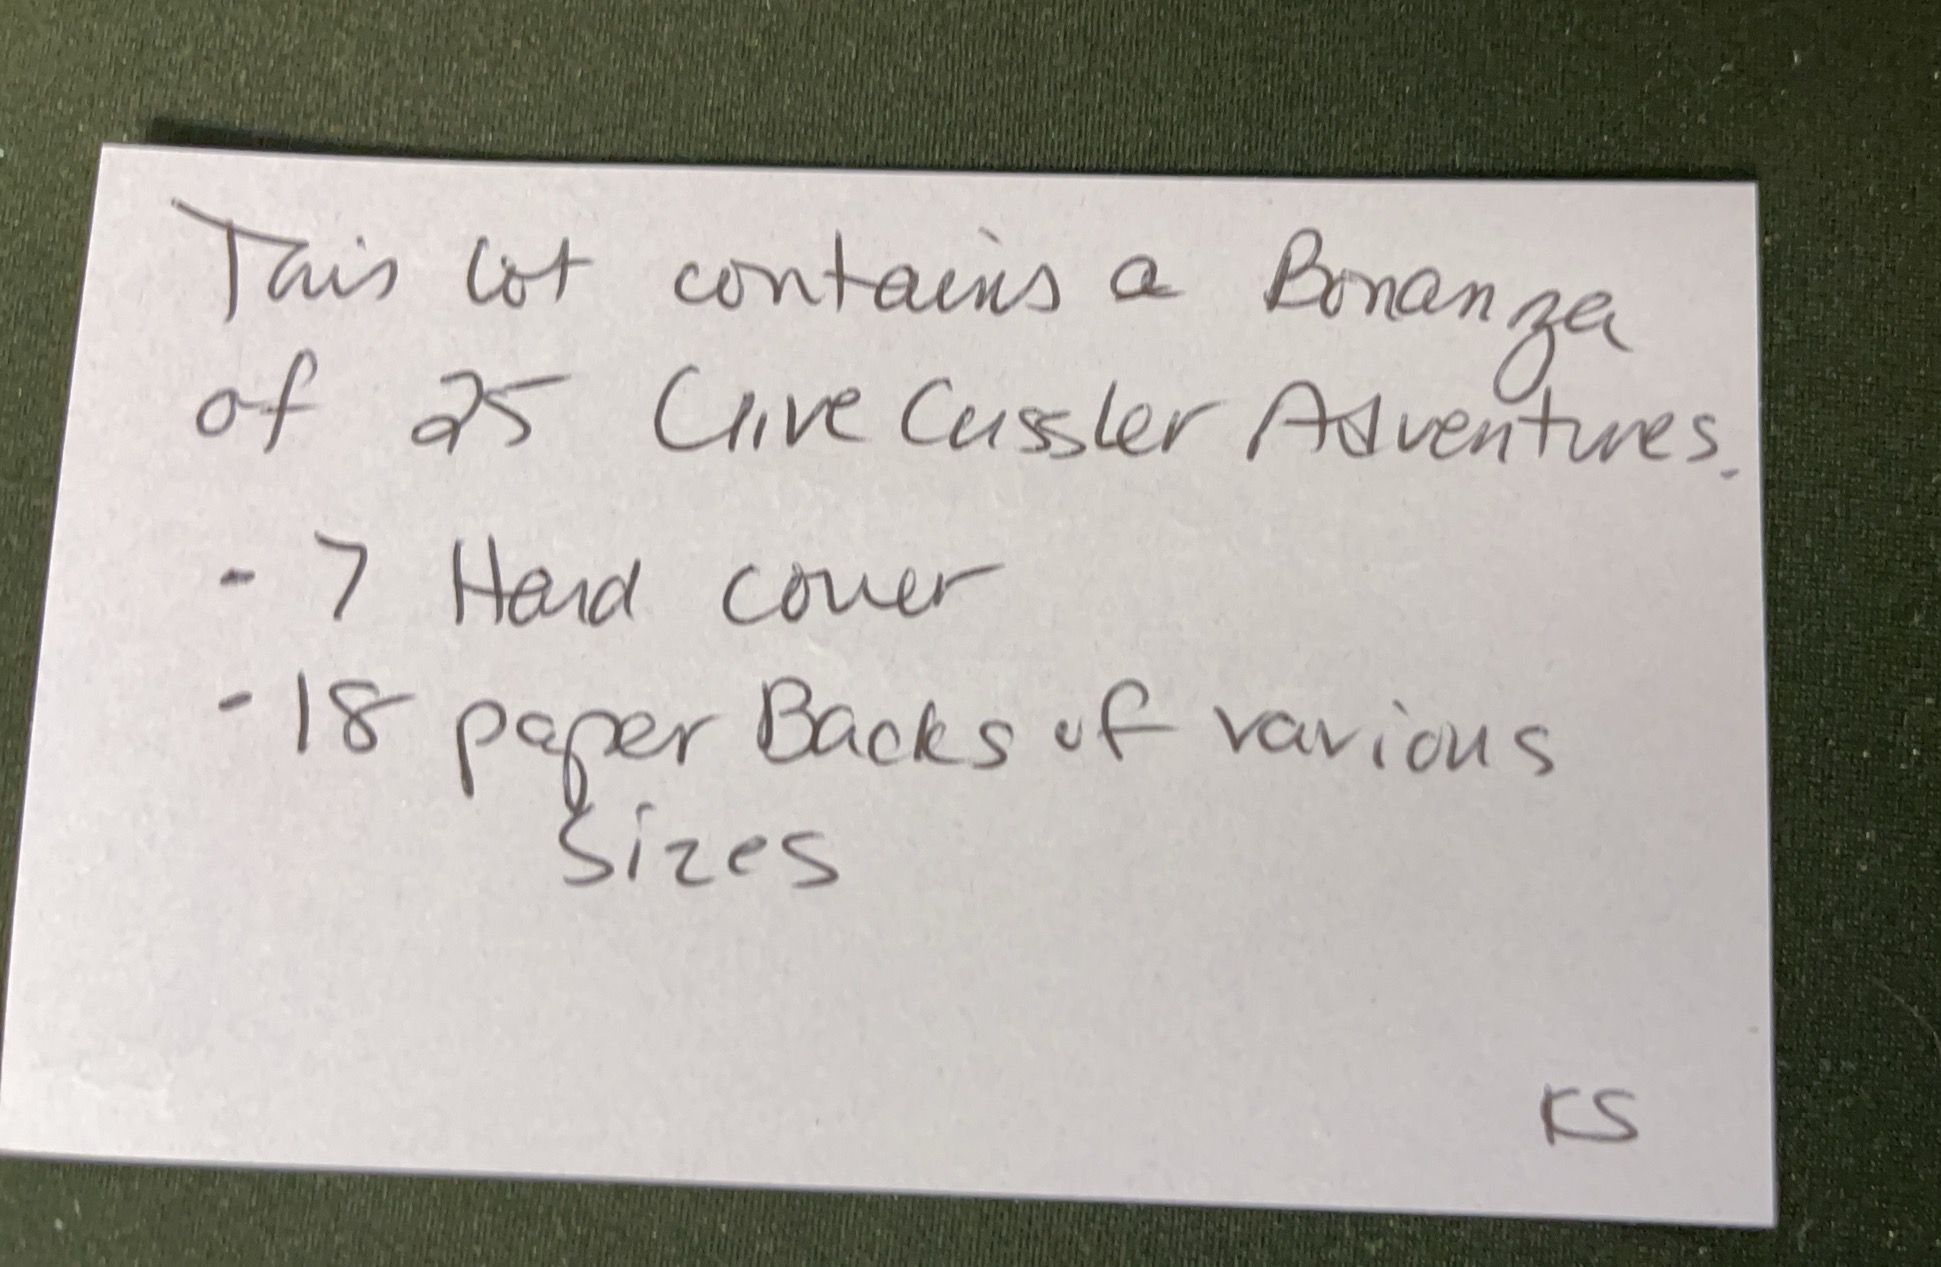 This lot contains a Bonanza
of 25 Clive Cussler Adventures.
- 7 Hard cover
- 18 paper Backs of various
sizes
KS